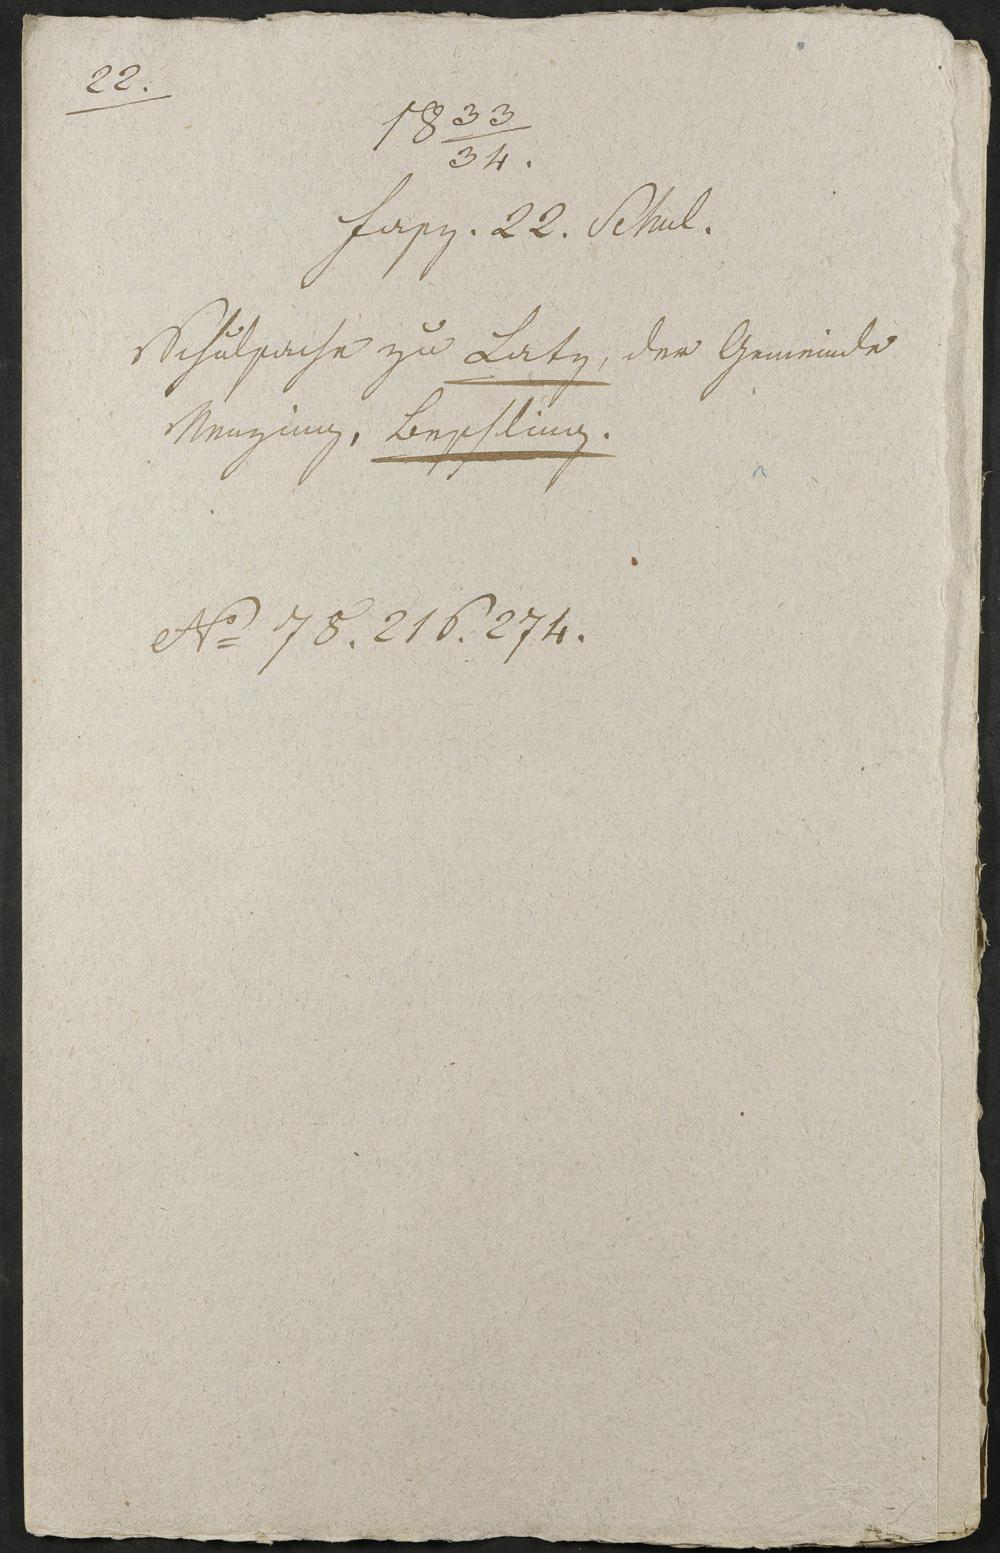 22.
18 33/34.
Fasz. 22. Schul.
Schulsache zu Latz, der Gemeinde
Nenzing, Beschling.
No 78. 216. 274.